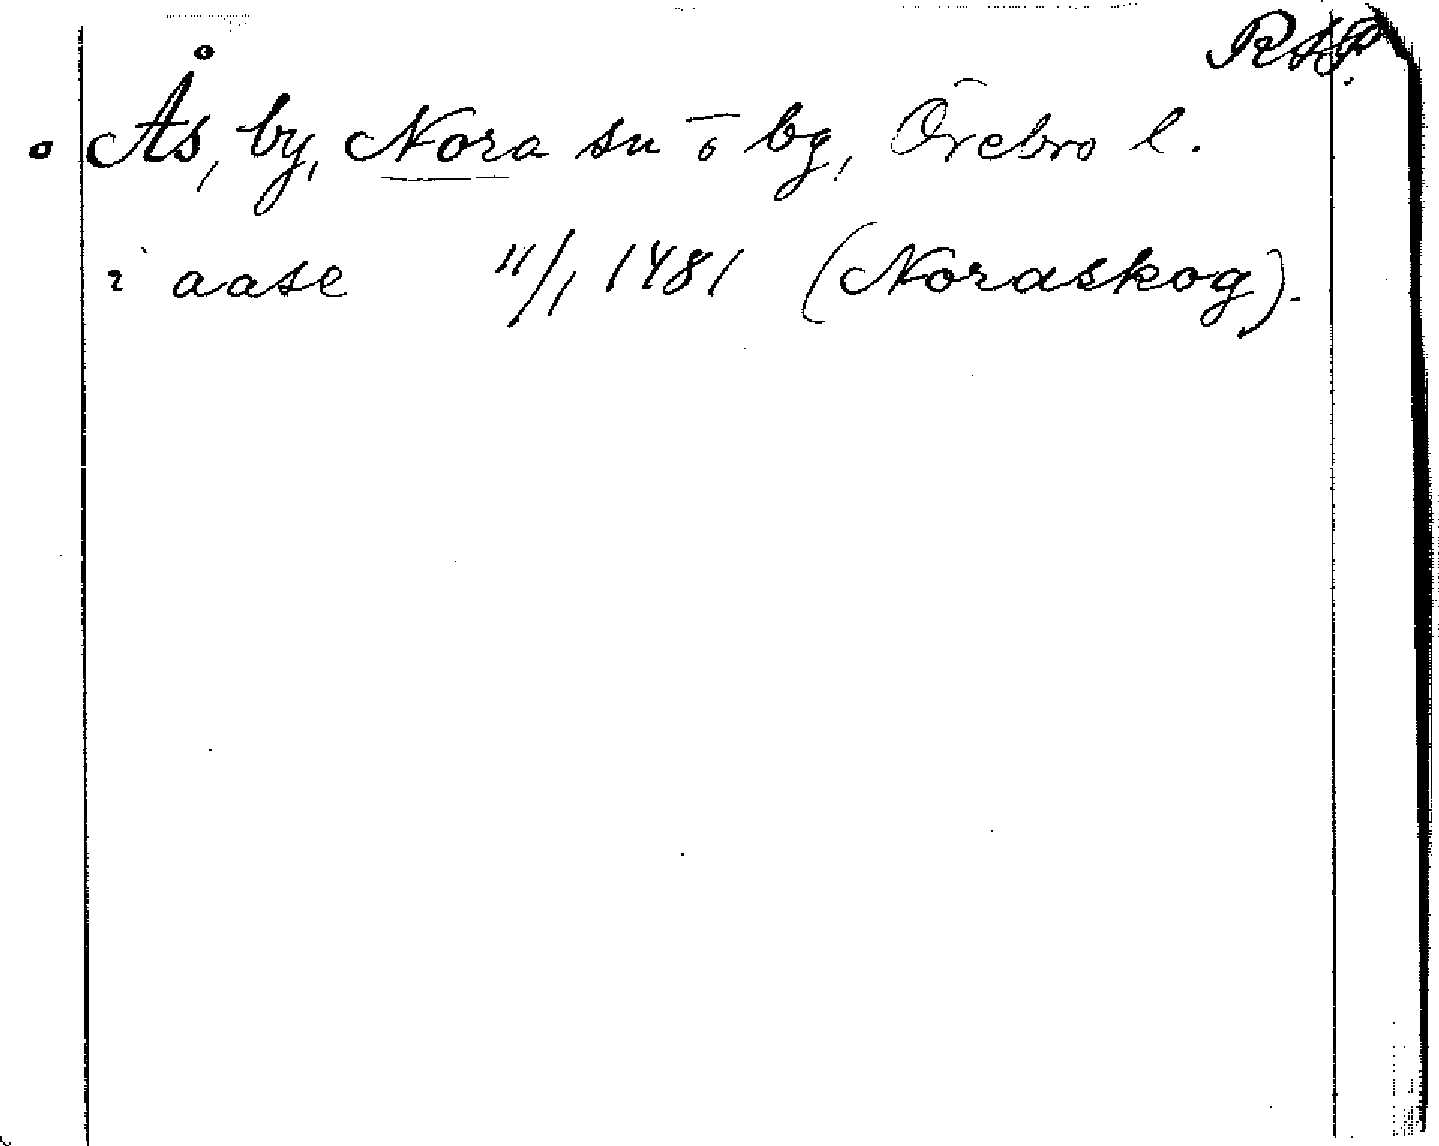 RAP.
Ås, by, Nora sn o bg, Örebro l.
i aase 11/1 1481 (Noraskog).